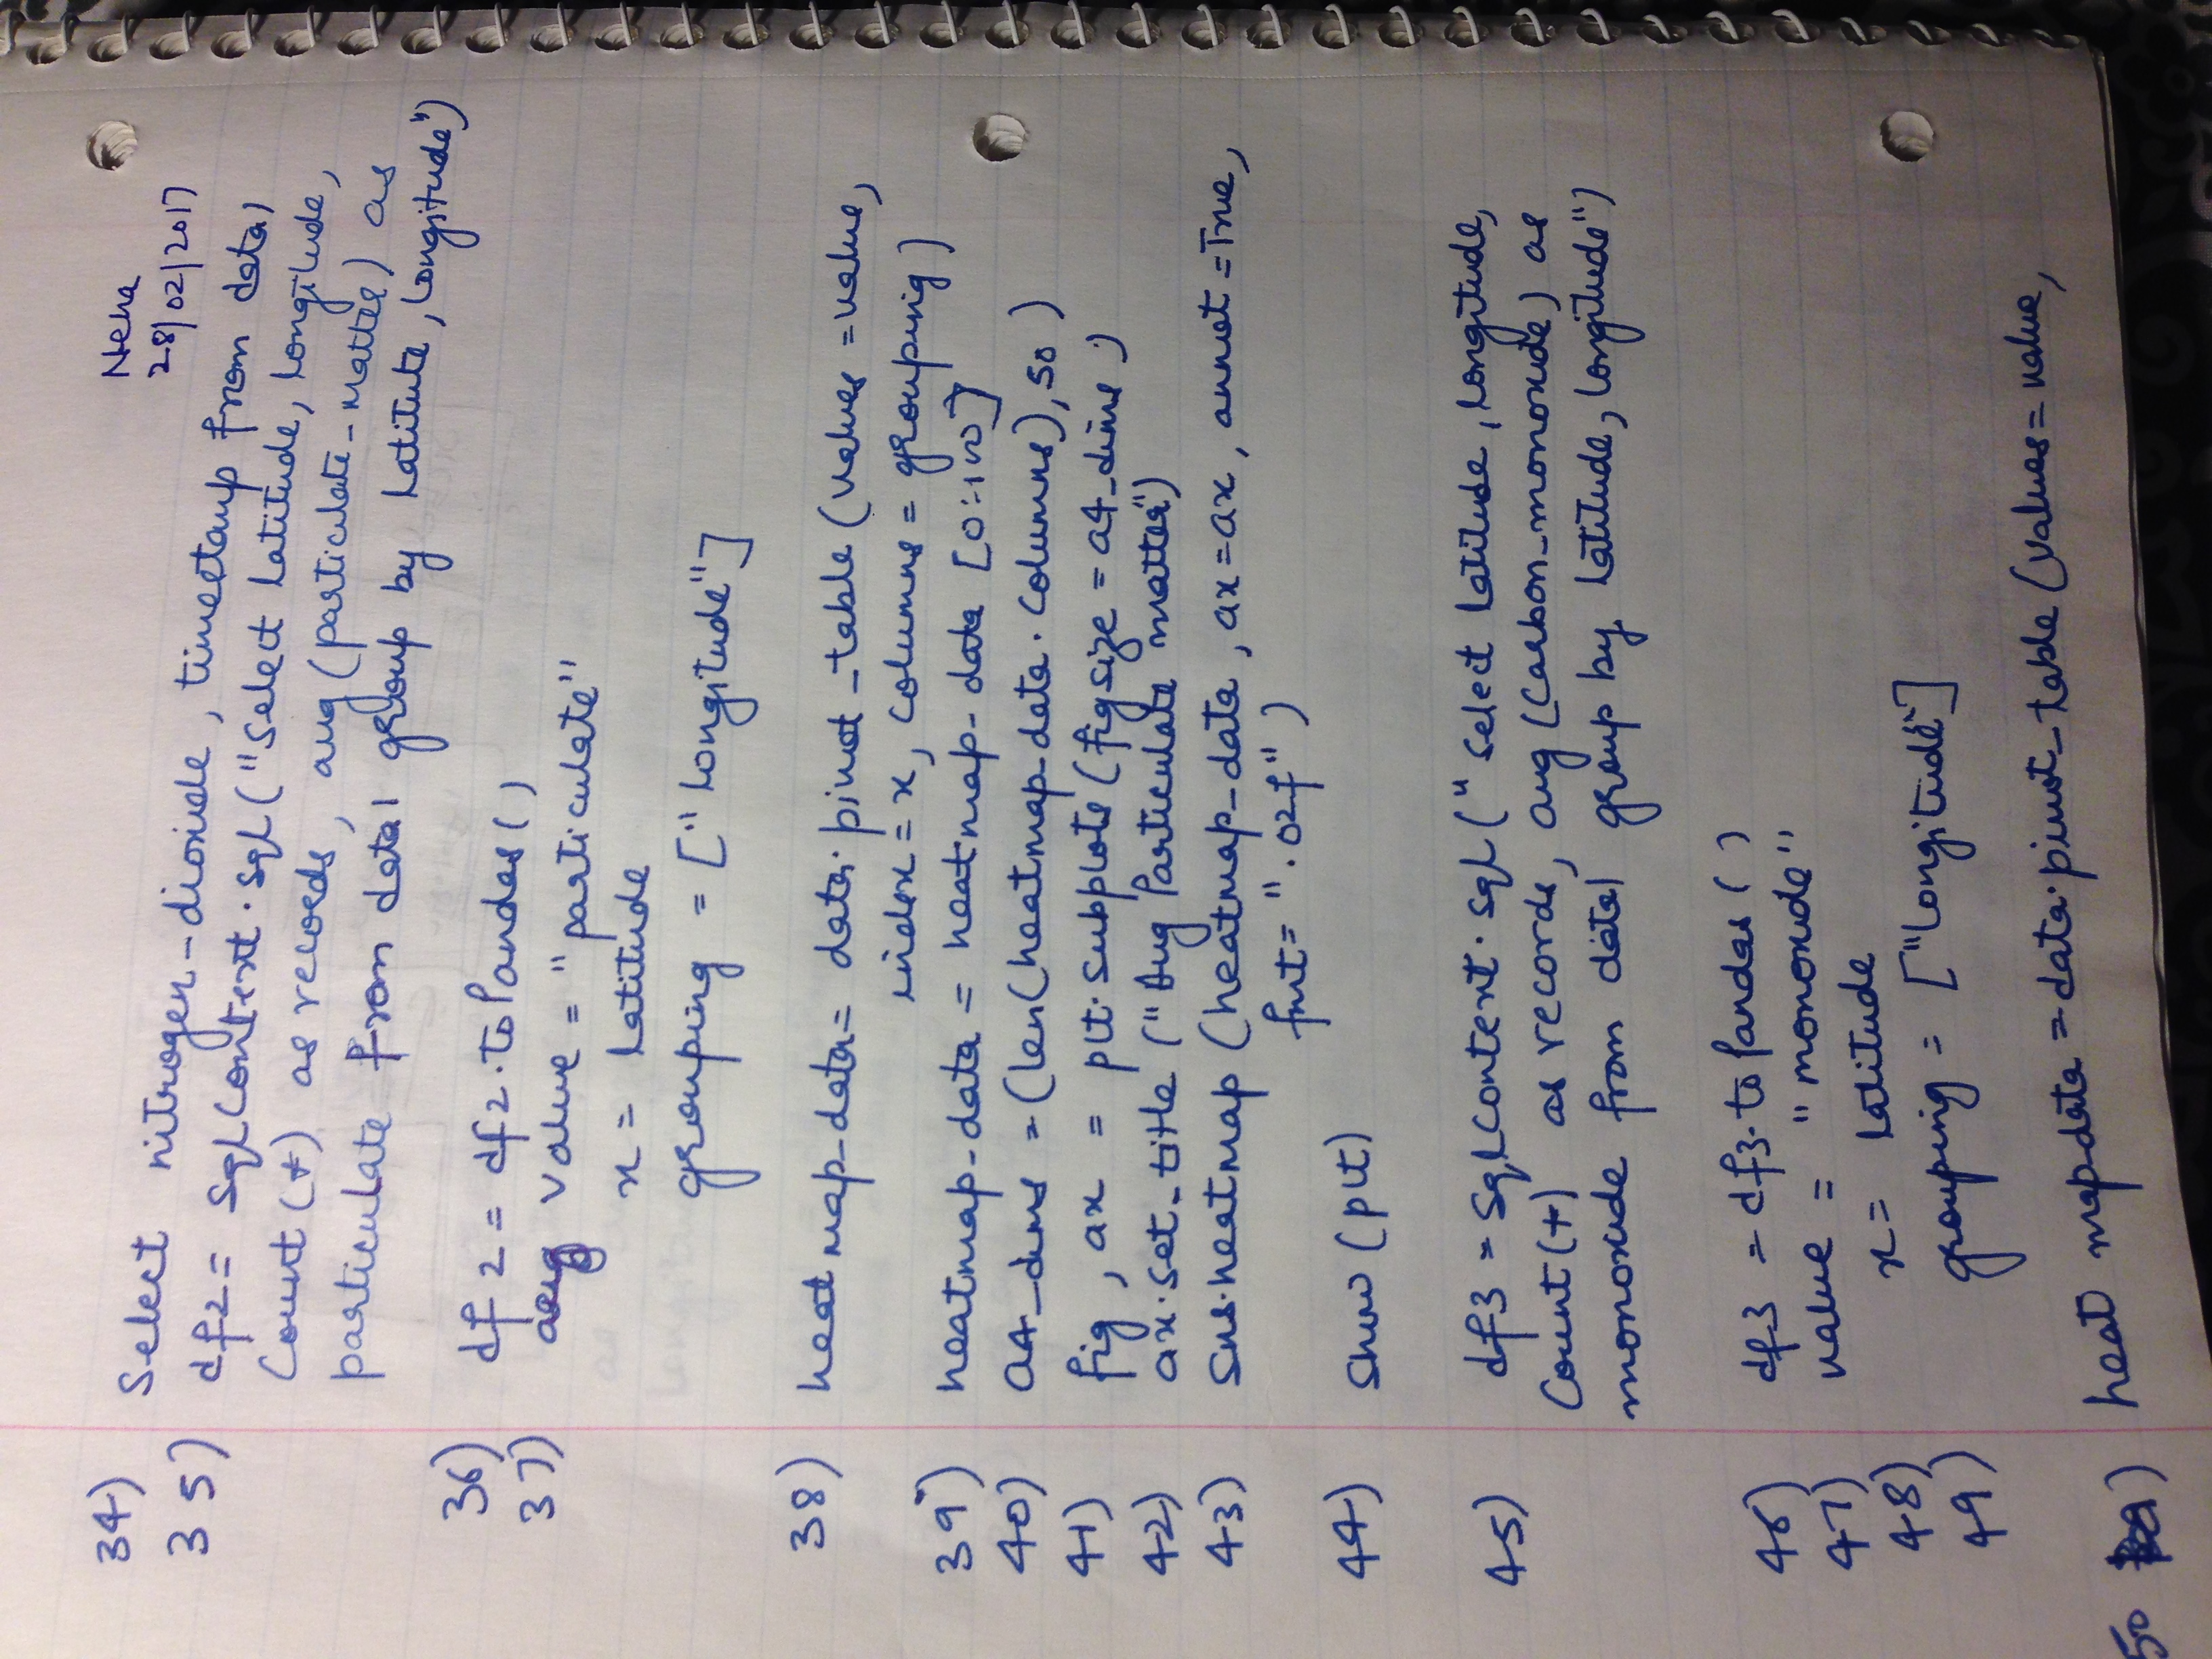 Neha
28/02/2017
34) Select nitrogen-dioxide, timestamp from data1
35) df2 = SqlContext.sql("Select latitude, longitude,
Count(*) as records, avg(particulate-matter) as
particulate from data1 group by latitute, longitude")
36) df2 = df2.toPandas()
37) value = "particulate"
x = latitude
grouping = ["longitude"]
38) heatmap-data = data.pivot_table(values=value,
index=x, columns=grouping)
39) heatmap-data = heatmap-data [0:100]
40) a4_dims = (len(heatmap-data.columns), 50)
41) fig, ax = plt.subplots(figsize = a4_dims)
42) ax.set_title("Avg Particulate matter")
43) sns.heatmap(heatmap_data, ax=ax, annot=True,
fmt=".02f")
44) show(plt)
45) df3 = SqlContext.sql("select latitude, longitude,
Count(*) as records, avg(carbon_monoxide) as
monoxide from data1 group by latitude, longitude")
46) df3 = df3.toPandas()
47) value = "monoxide"
48) x = latitude
49) grouping = ["longitude"]
50) heat map-data = data.pivot_table(values=value,